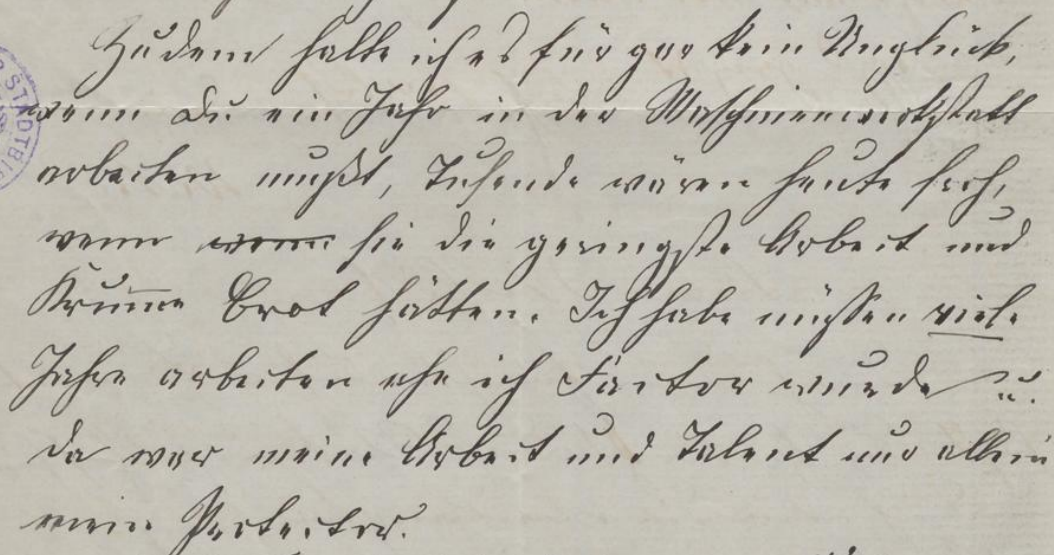 Zudem halte ich es für gar kein Unglück,
STADTBI
wenn Du ein Jahr in der Maschinenwerkstatt
arbeiten mußt, Tusende wären heute froh,
wenn wenn sie die geringste Arbeit und
Krume Brot hätten. Ich habe müssen viele
Jahre arbeiten ehe ich Factor wurde u.
da war meine Arbeit und Talent nur allein
mein Protector.